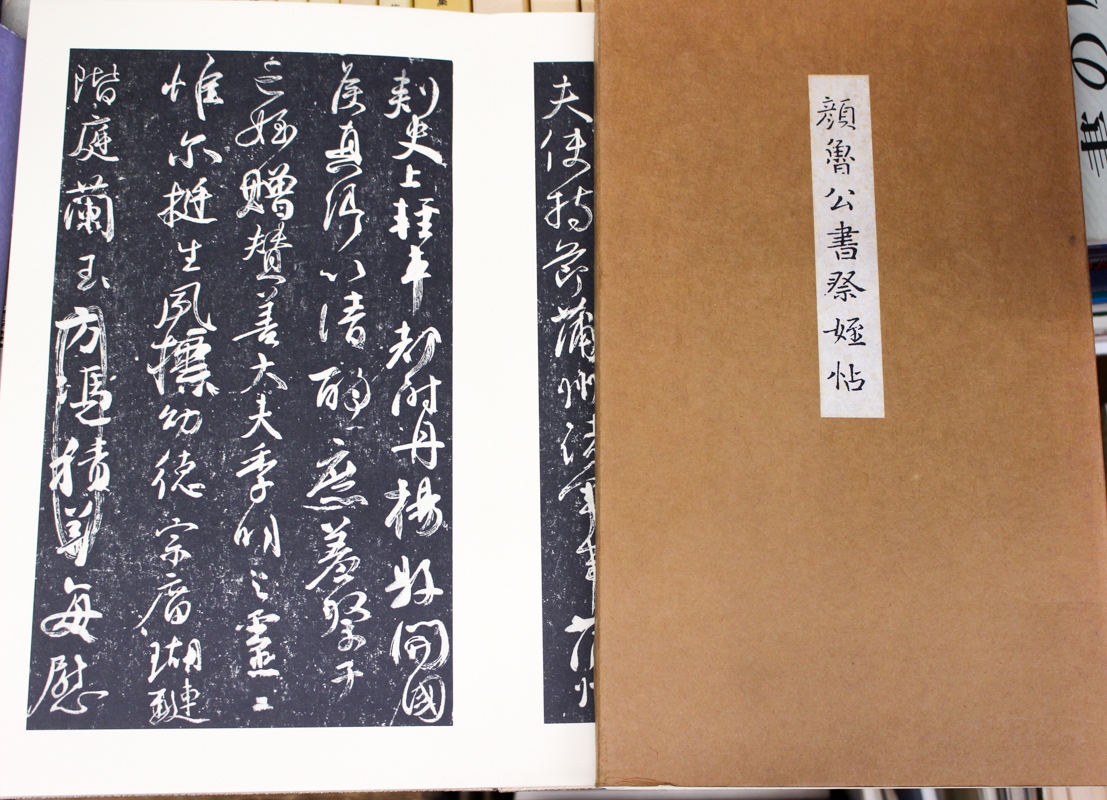 顔魯公書祭姪帖
夫使持節蒲州諸軍事蒲州
刺史上輕車都尉丹楊縣開國
侯真卿以清酌庶羞祭于
亡姪贈賛善大夫季明之靈
惟尔挺生夙標幼德宗廟瑚璉
階庭蘭玉方憑積善每慰